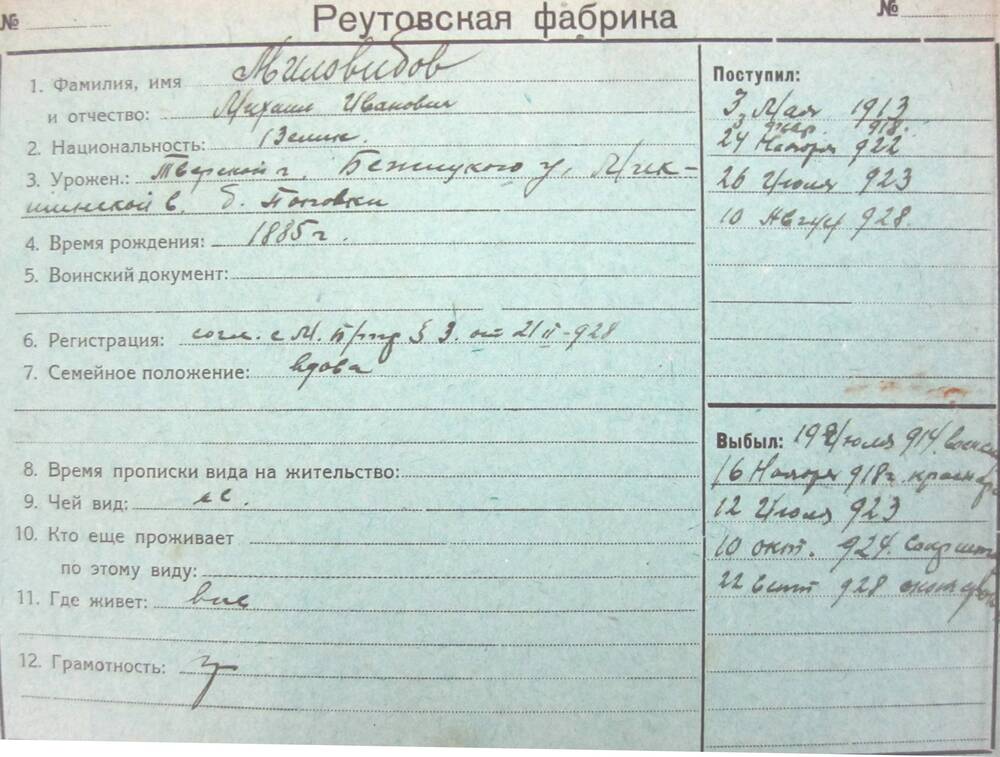 № Реутовская фабрика №
1. Фамилия, имя Миловидов
и отчество: Михаил Иванович
2. Национальность:
3. Урожен.: Тверской г. Бежицкого у,
в. д. Поповки
4. Время рождения: 1885 г.
5. Воинский документ:
6. Регистрация: согл. с М. § 3. от 21 II-928
7. Семейное положение: вдова
8. Время прописки вида на жительство:
9. Чей вид:
10. Кто еще проживает
по этому виду:
11. Где живет:
12. Грамотность: гр
Поступил:
3 Мая 1913
918.
24 Ноября 922
26 Июля 923
10 Август 928.
Выбыл: 19 Июля 914.
16 Ноября 918 г.
12 Июля 923
10 окт. 924.
22 928